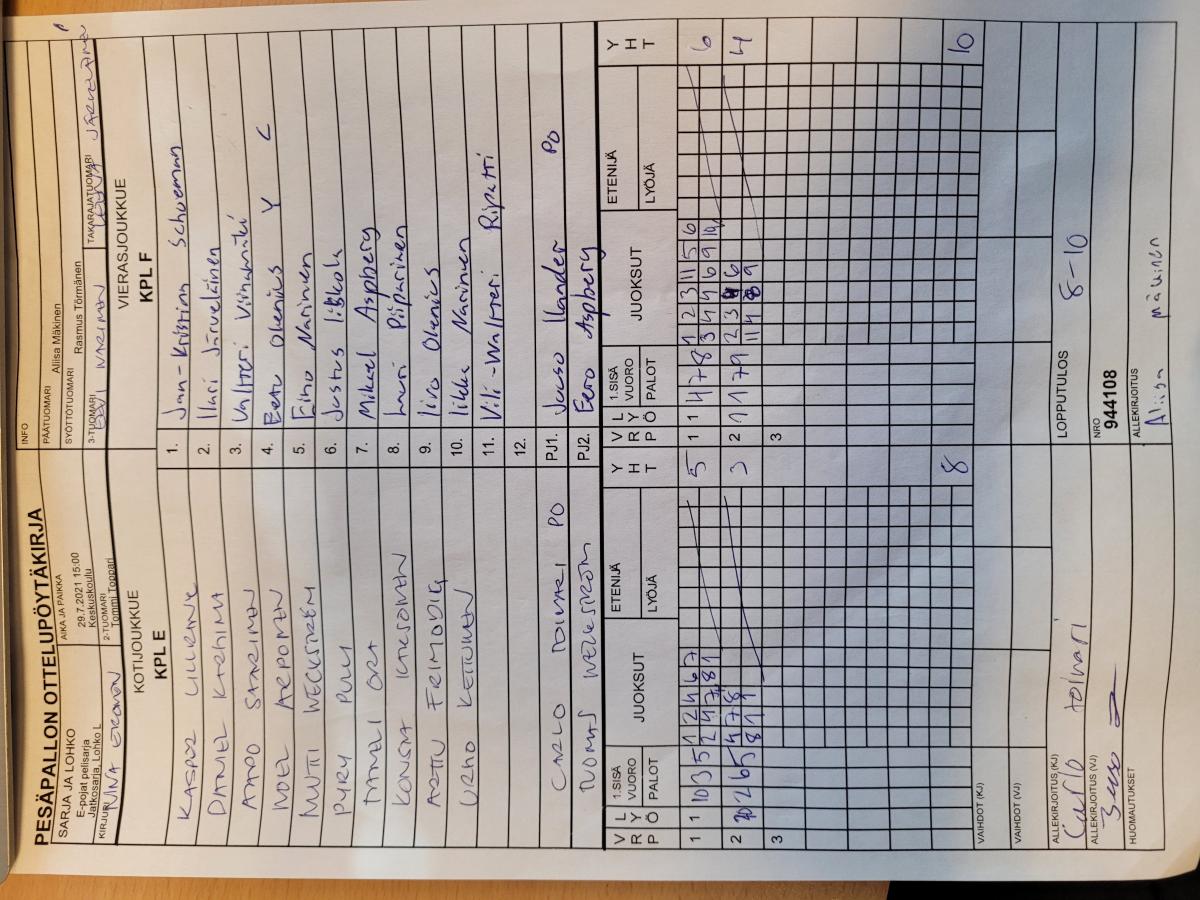 PESÄPALLON OTTELUPÖYTÄKIRJA
SARJA JA LOHKO
E-pojat pelisarja
Jatkosarja, Lohko L
AIKA JA PAIKKA
29.7.2021 15:00
Keskuskoulu
INFO
PÄÄTUOMARI
Aliisa Mäkinen
SYÖTTÖTUOMARI
Rasmus Törmänen
KIRJURI
NINA
2-TUOMARI
Tommi Toppari
3-TUOMARI
EEVI NARINEN
TAKARAJATUOMARI
KOTIJOUKKUE
KPL E
VIERASJOUKKUE
KPL F
KASPER
1. Jan-Kristian Schoeman
DANIEL KARHIMA
2. Ilari Järveläinen
AAPO SAARIMAN
3. Valtteri Viinamäki
NOEL ARPONEN
4. Eetu Olenius Y C
WECKSTRÖM
5. Eino Narinen
PYRY PULLI
6. Justus
DANIELI ORA
7. Mikael Aspberg
8. Lauri Piiparinen
ARTTU FRIMODIG
9. Iivo Olenius
URHO KETTUNEN
10. Iikka Narinen
11. Vili-Waltteri Ripatti
12.
CARLO TOLVARI PO
PJ1. Juuso Ilander PO
TUOMAS WECKSTRÖM
PJ2. Eero Aspberg
V R P
L Y Ö
1.SISÄ VUORO
PALOT
JUOKSUT
ETENIJÄ
LYÖJÄ
Y H T
V R P
L Y Ö
1.SISÄ VUORO
PALOT
JUOKSUT
ETENIJÄ
LYÖJÄ
Y H T
1 1 10 3 5 1 2 4 6 7
2 4 7 8 1
5
1 1 4 7 8 1 2 3 11 5 6
3 4 4 6 9
6
2
2 6 5 4 7 8
8 1 1
3
2 1 1 7 9 2 3 4 6
11 4 8 9
4
3
3
8
10
VAIHDOT (KJ)
VAIHDOT (VJ)
ALLEKIRJOITUS (KJ)
Carlo Tolvari
LOPPUTULOS
8-10
ALLEKIRJOITUS (VJ)
NRO
944108
HUOMAUTUKSET
ALLEKIRJOITUS
Aliisa Mäkinen